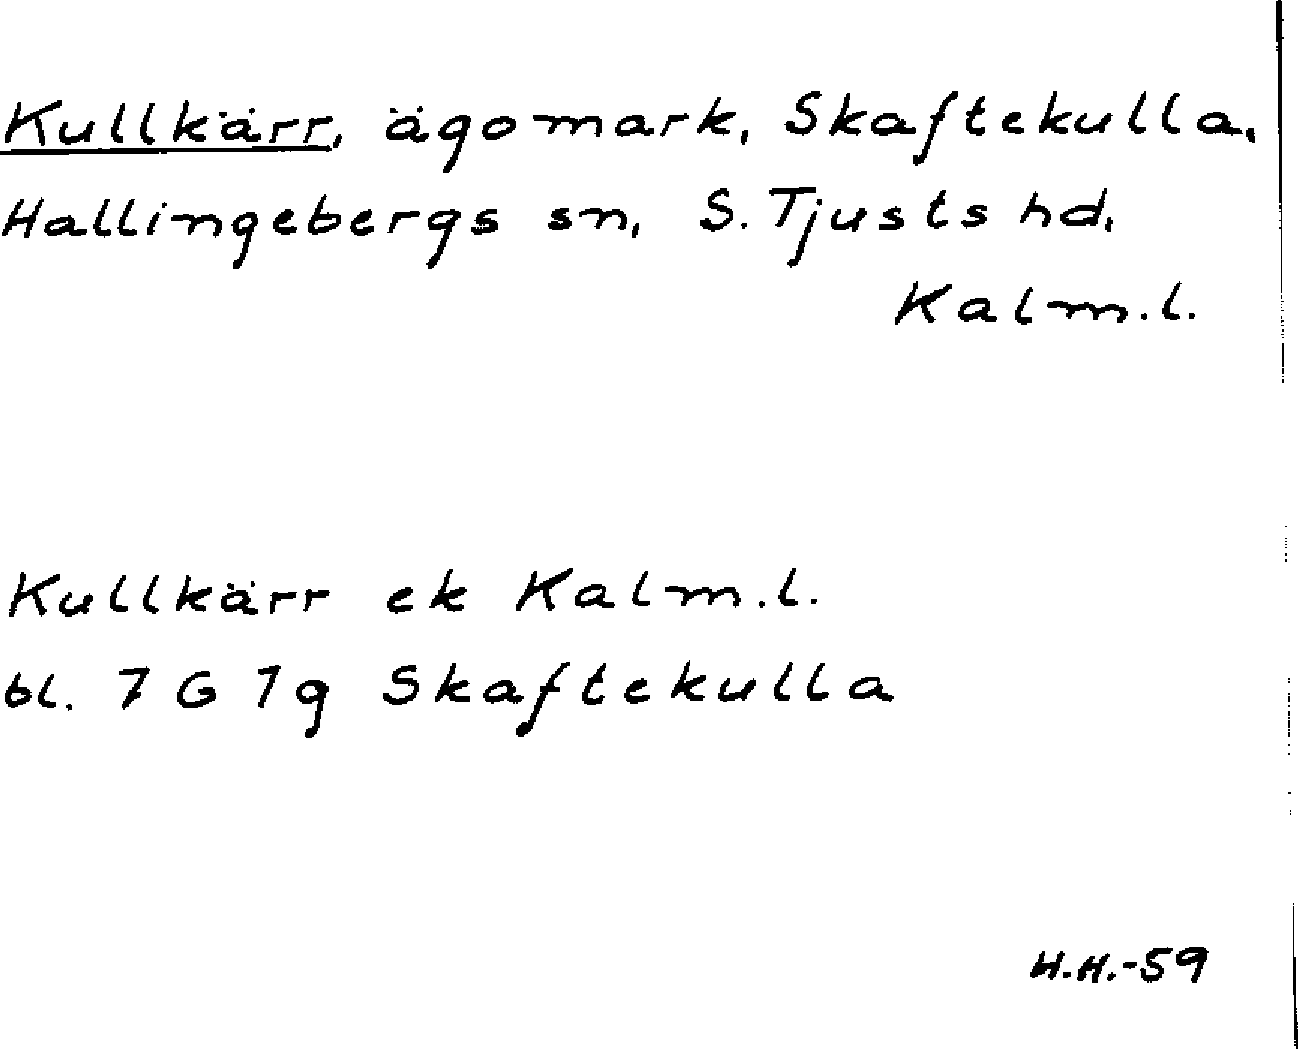 Kullkärr, ägomark, Skaftekulla,
Hallingebergs sn, S. Tjusts hd,
Kalm.l.
Kullkärr ek Kalm.l.
bl. 7 G 1g Skaftekulla
H.H.-59